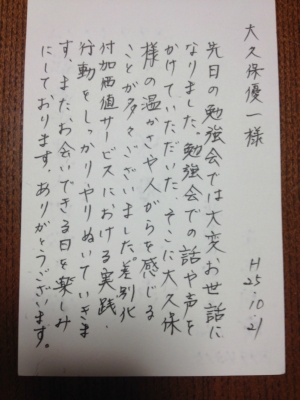 大久保優一様
H25.10.21
先日の勉強会では大変お世話に
なりました。勉強会での話や声を
かけていただいた、そこに大久保
様の温かさや人がらを感じる
ことが多々ございました。差別化
付加価値サービスにおける実践・
行動をしっかりやりぬいていきま
す。また、お会いできる日を楽しみ
にしております。ありがとうございます。